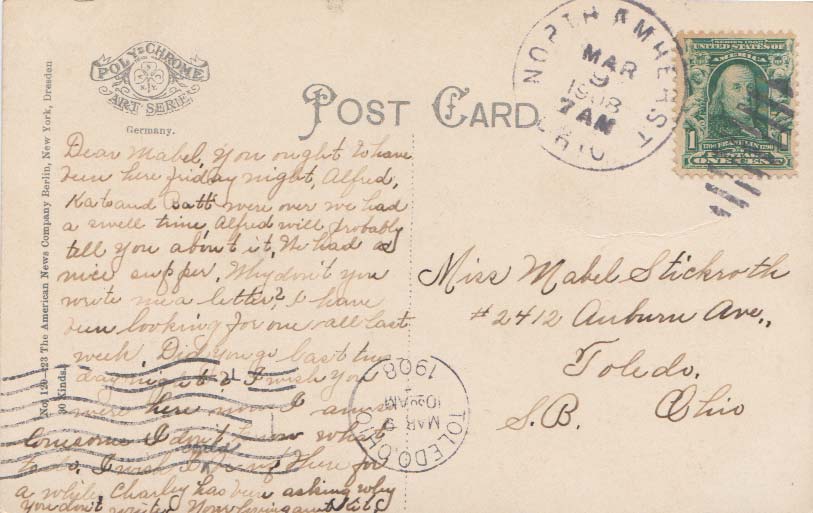 POLY-CHROME
ART SERIE
Germany.
POST CARD
No. 120-123 The American News Company Berlin, New York, Dresden
90 Kinds.
NORTH AMHERST
MAR
9
1908
7 AM
OHIO
SERIES 1902
UNITED STATES OF
AMERICA
1706 FRANKLIN 1790
1 POSTAGE 1
ONE CENT
Dear Mabel, You ought to have
been here friday night, Alfred,
Kate and Batt were over we had
a swell time, Alfred will probably
tell you about it, We had a
nice supper, Why don't you
write me a letter? I have
been looking for one all last
week, Did you go last
day night? I wish you
were here now I am
lonesome I don't know what
to do. I wish I could there for
a while, Charley has been asking why
you don't write. Your loving aunt
Miss Mabel Stickroth
#2412 Auburn Ave.,
Toledo,
S.B. Ohio
TOLEDO, OHIO
MAR 9
10 30 AM
1908